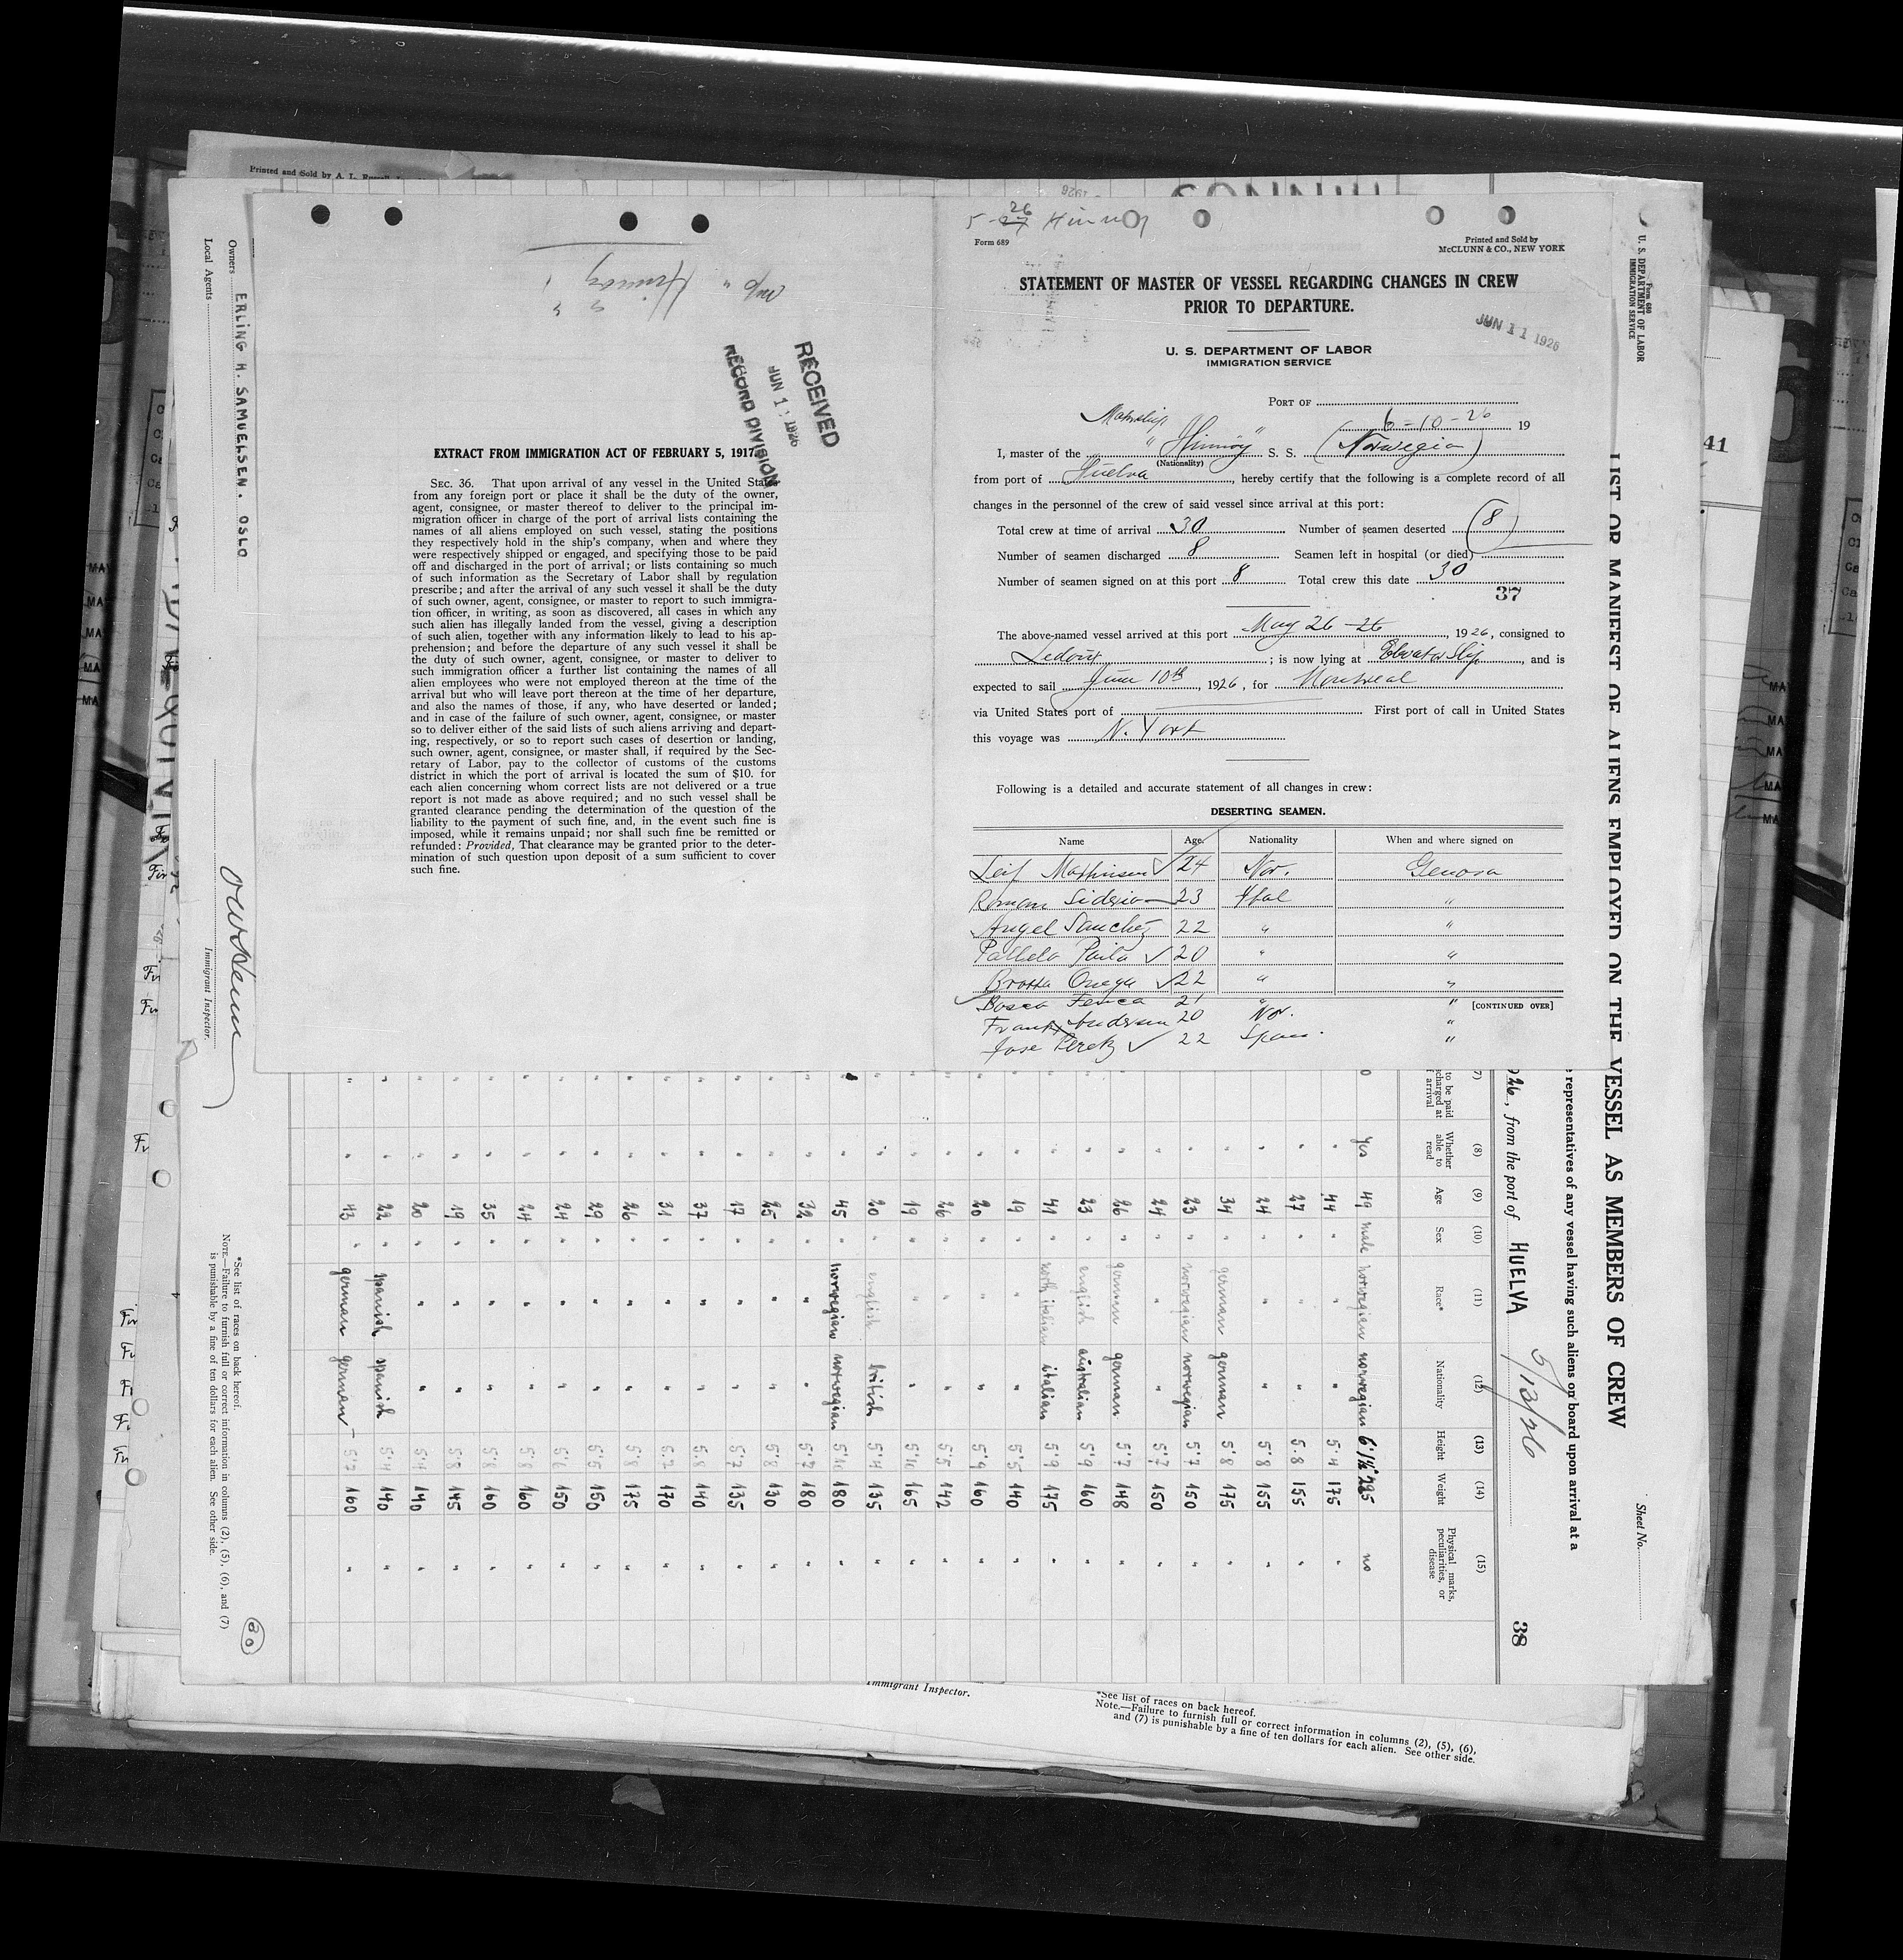 Printed and Sold by A. L.
5-26 Hinnoy
Form 689
Printed and Sold by
McCLUNN & CO., NEW YORK
STATEMENT OF MASTER OF VESSEL REGARDING CHANGES IN CREW
PRIOR TO DEPARTURE.
JUN 11 1926
U. S. DEPARTMENT OF LABOR
IMMIGRATION SERVICE
PORT OF
6-10-26 19
I, master of the "Hinnöy" S. S. (Norwegia)
(Nationality)
from port of Huelva, hereby certify that the following is a complete record of all
changes in the personnel of the crew of said vessel since arrival at this port:
Total crew at time of arrival 30 Number of seamen deserted (8)
Number of seamen discharged 8 Seamen left in hospital (or died)
Number of seamen signed on at this port 8 Total crew this date 30
37
The above-named vessel arrived at this port May 26-26, 1926, consigned to
; is now lying at, and is
expected to sail June 10th, 1926, for Montreal
via United States port of First port of call in United States
this voyage was N. York
Following is a detailed and accurate statement of all changes in crew:
DESERTING SEAMEN.
Name Age. Nationality When and where signed on
Leif 24 Nor. Genova
Roman 23 Ital "
Angel Sanchez 22 " "
20 " "
22 " "
Bosco 21 " "
[CONTINUED OVER]
Frank Andersen 20 Nor. "
Jose Peretz 22 Spain. "
M/S "Hinnoy"
RECEIVED
JUN 11 1926
RECORD DIVISION
EXTRACT FROM IMMIGRATION ACT OF FEBRUARY 5, 1917.
SEC. 36. That upon arrival of any vessel in the United States
from any foreign port or place it shall be the duty of the owner,
agent, consignee, or master thereof to deliver to the principal im-
migration officer in charge of the port of arrival lists containing the
names of all aliens employed on such vessel, stating the positions
they respectively hold in the ship's company, when and where they
were respectively shipped or engaged, and specifying those to be paid
off and discharged in the port of arrival; or lists containing so much
of such information as the Secretary of Labor shall by regulation
prescribe; and after the arrival of any such vessel it shall be the duty
of such owner, agent, consignee, or master to report to such immigra-
tion officer, in writing, as soon as discovered, all cases in which any
such alien has illegally landed from the vessel, giving a description
of such alien, together with any information likely to lead to his ap-
prehension; and before the departure of any such vessel it shall be
the duty of such owner, agent, consignee, or master to deliver to
such immigration officer a further list containing the names of all
alien employees who were not employed thereon at the time of the
arrival but who will leave port thereon at the time of her departure,
and also the names of those, if any, who have deserted or landed;
and in case of the failure of such owner, agent, consignee, or master
so to deliver either of the said lists of such aliens arriving and depart-
ing, respectively, or so to report such cases of desertion or landing,
such owner, agent, consignee, or master shall, if required by the Sec-
retary of Labor, pay to the collector of customs of the customs
district in which the port of arrival is located the sum of $10. for
each alien concerning whom correct lists are not delivered or a true
report is not made as above required; and no such vessel shall be
granted clearance pending the determination of the question of the
liability to the payment of such fine, and, in the event such fine is
imposed, while it remains unpaid; nor shall such fine be remitted or
refunded: Provided, That clearance may be granted prior to the deter-
mination of such question upon deposit of a sum sufficient to cover
such fine.
Form 680
U. S. DEPARTMENT OF LABOR
IMMIGRATION SERVICE
LIST OR MANIFEST OF ALIENS EMPLOYED ON THE VESSEL AS MEMBERS OF CREW
Sheet No.
representatives of any vessel having such aliens on board upon arrival at a
26, from the port of HUELVA 5/13/26
38
(7) (8) (9) (10) (11) (12) (13) (14) (15)
to be paid
charged at
arrival
Whether
able to
read
Age
Sex
Race*
Nationality
Height
Weight
Physical marks,
peculiarities, or
disease
yes 49 male norwegian norwegian 6'1½" 225 no
" 44 " " " 5.4 175 "
" 27 " " " 5.8 155 "
" 24 " " " 5.8 155 "
" 34 " german german 5.8 175 "
" 23 " norwegian norwegian 5.7 150 "
" 24 " " " 5.7 150 "
" 26 " german german 5.7 148 "
" 23 " english australian 5.9 160 "
" 41 " north italian italian 5.9 175 "
" 19 " " " 5.5 140 "
" 20 " " " 5.9 160 "
" 26 " " " 5.5 142 "
" 19 " " " 5.10 165 "
" 20 " english british 5.4 135 "
" 45 " norwegian norwegian 5.10 180 "
" 32 " " " 5.7 180 "
" 25 " " " 5.8 130 "
" 17 " " " 5.7 135 "
" 37 " " " 5.8 140 "
" 31 " " " 5.7 170 "
" 26 " " " 5.8 175 "
" 29 " " " 5.5 150 "
" 24 " " " 5.6 150 "
" 24 " " " 5.8 160 "
" 35 " " " 5.8 160 "
" 19 " " " 5.8 145 "
" 20 " " " 5.4 140 "
" 22 " spanish spanish 5.4 140 "
" 43 " german german 5.7 160 "
Owners ERLING H. SAMUELSEN. OSLO
Local Agents
Immigrant Inspector.
*See list of races on back hereof.
NOTE.—Failure to furnish full or correct information in columns (2), (5), (6), and (7)
is punishable by a fine of ten dollars for each alien. See other side.
80
41
Immigrant Inspector.
*See list of races on back hereof.
Note.—Failure to furnish full or correct information in columns (2), (5), (6),
and (7) is punishable by a fine of ten dollars for each alien. See other side.